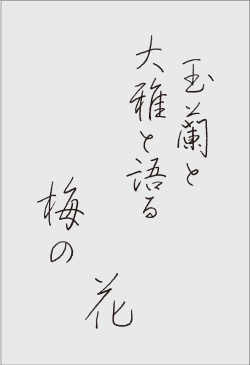 玉蘭と
大雅と語る
梅の
花